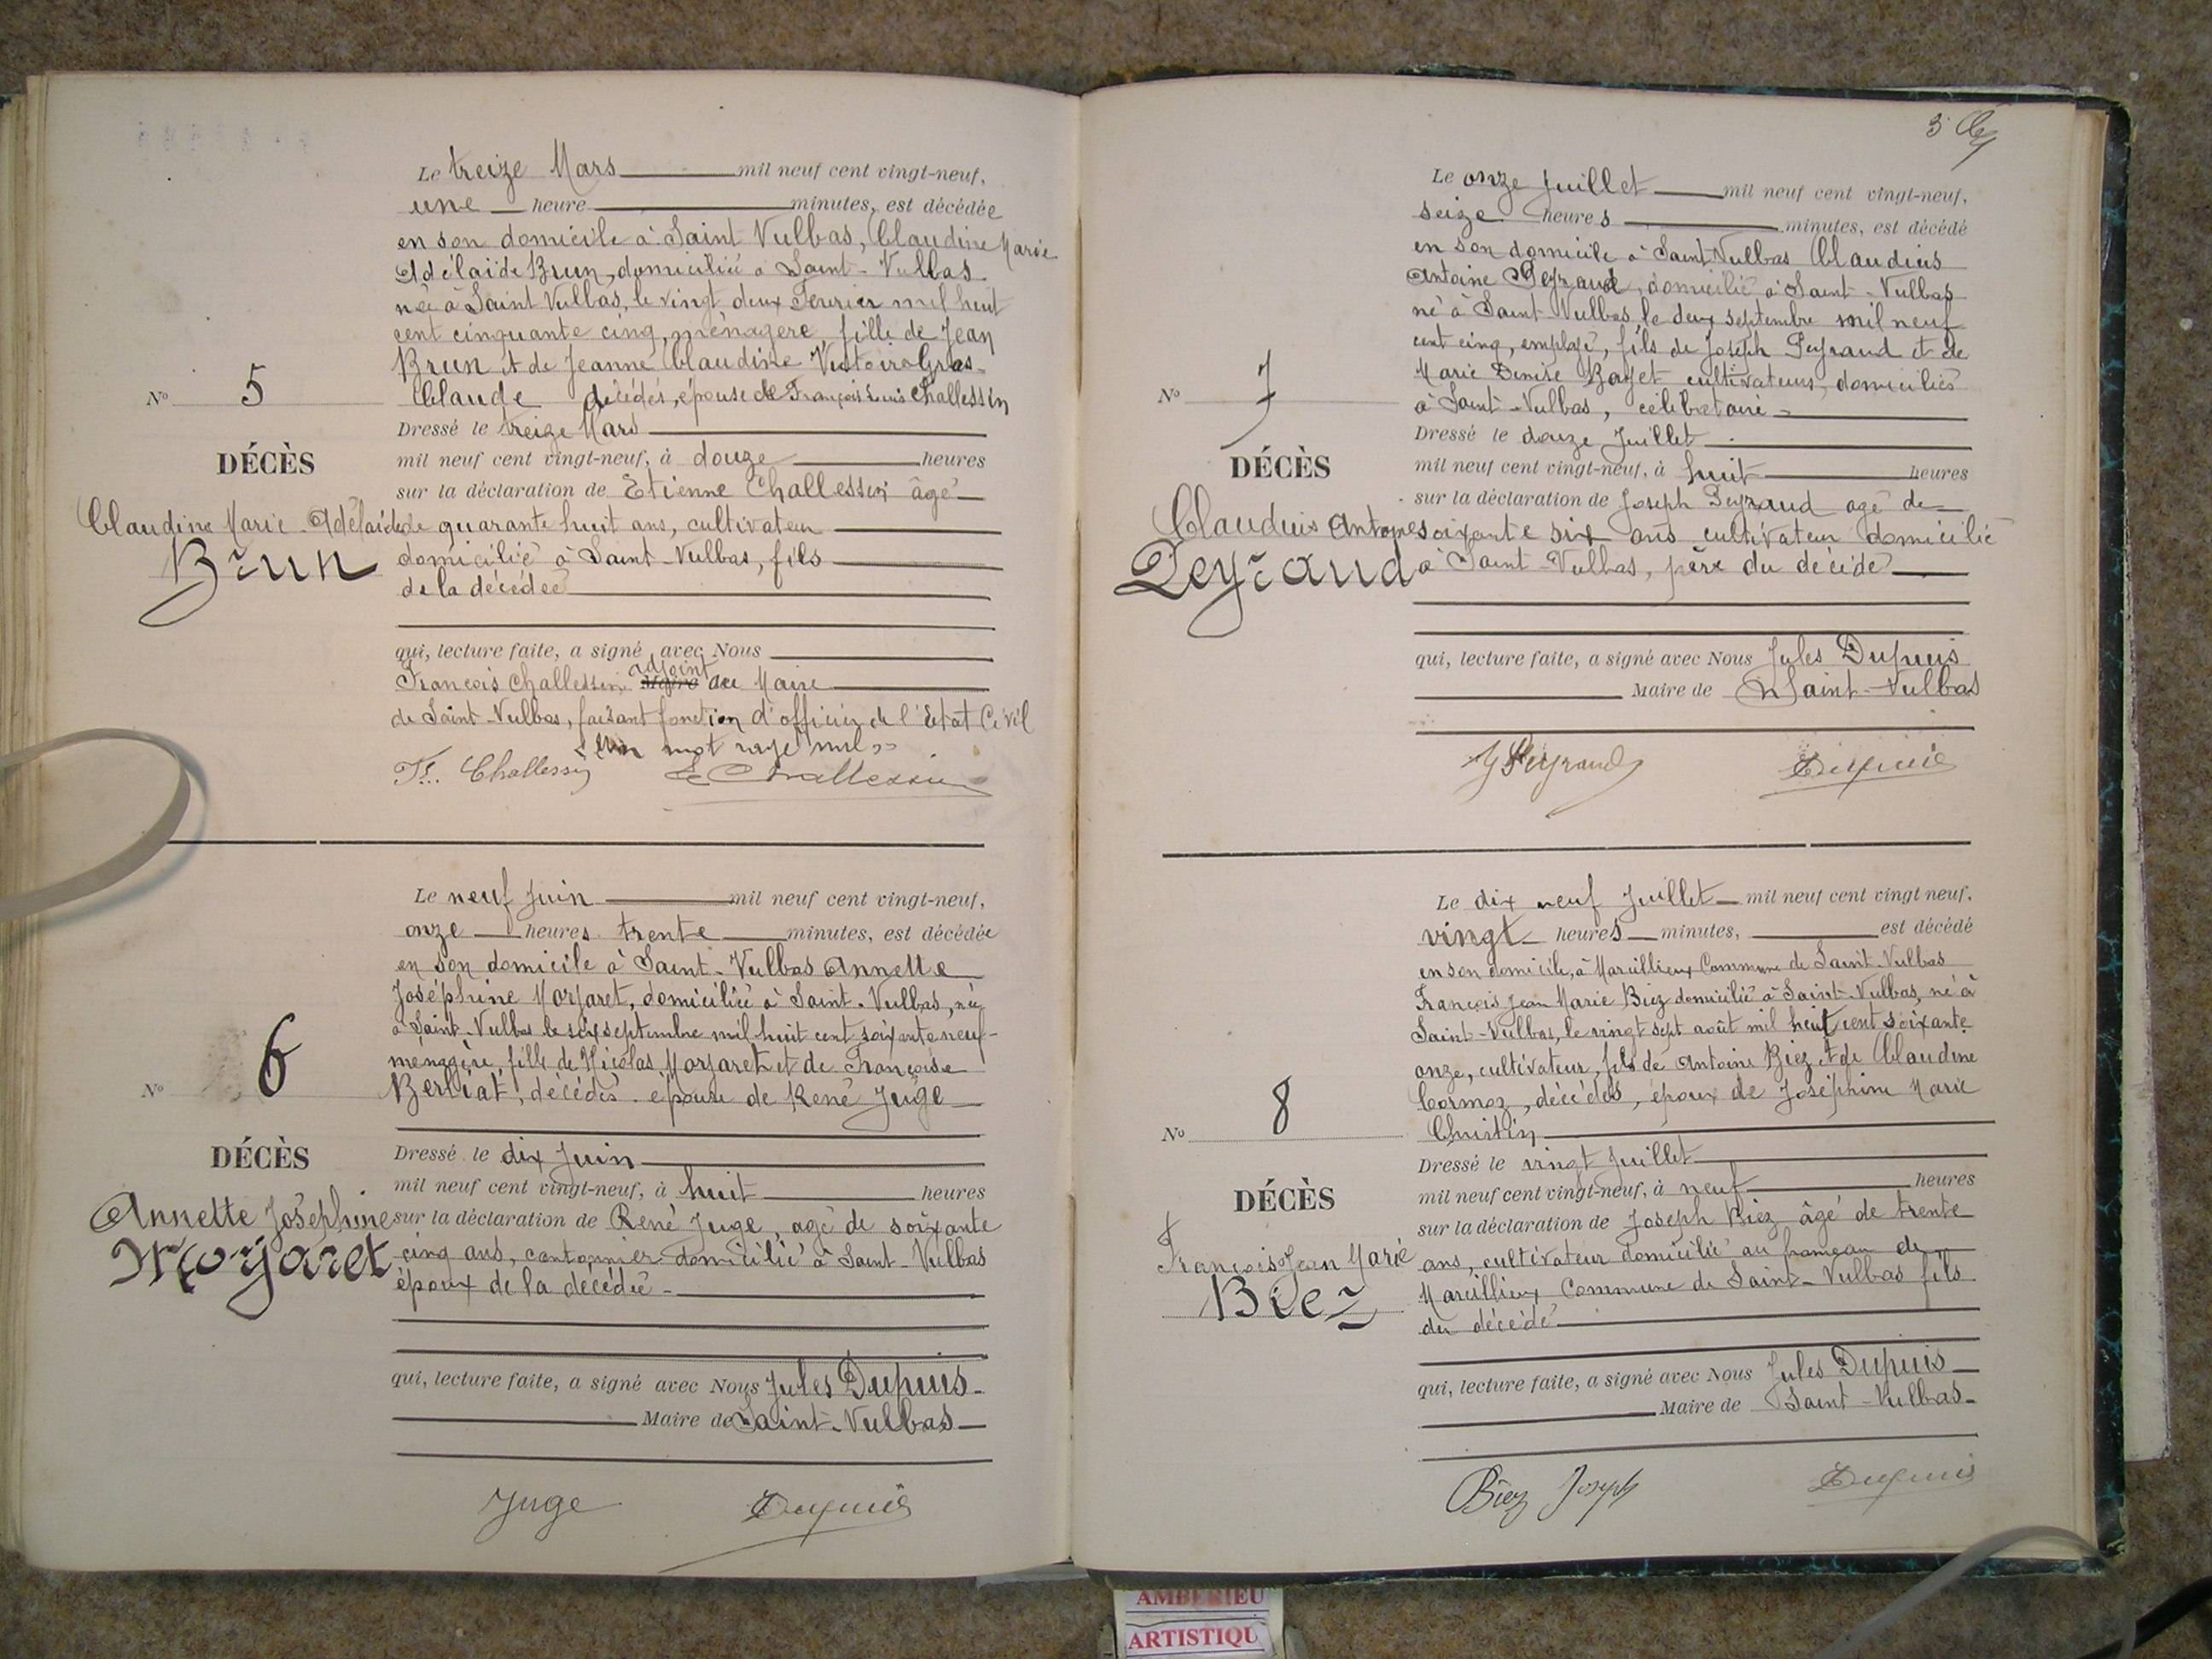 Le treize Mars mil neuf cent vingt-neuf,
une heure minutes, est décédée
en son domicile à Saint Vulbas, Claudine Marie
Adélaïde Brun, domiciliée à Saint-Vulbas
née à Saint Vulbas, le vingt deux Février mil huit
cent cinquante cinq, ménagère, fille de Jean
Brun et de Jeanne Claudine Victoire Gros-
Claude décédés, épouse de François Louis Challessin
No 5
DÉCÈS
Claudine Marie Adélaïde
Brun
Dressé le treize Mars
mil neuf cent vingt-neuf, à douze heures
sur la déclaration de Etienne Challessin âgé
de quarante huit ans, cultivateur
domicilié à Saint-Vulbas, fils
de la décédée
qui, lecture faite, a signé avec Nous
François Challessin adjoint au Maire
de Saint-Vulbas, faisant fonction d'officier de l'Etat Civil
"un mot rayé nul"
Fs. Challessin E Challessin
Le neuf Juin mil neuf cent vingt-neuf,
onze heures trente minutes, est décédée
en son domicile à Saint-Vulbas Annette
Joséphine Morjaret, domiciliée à Saint-Vulbas, née
à Saint-Vulbas le six septembre mil huit cent soixante neuf-
ménagère, fille de Nicolas Morjaret et de Françoise
Berliat, décédés. épouse de René Juge
No 6
DÉCÈS
Annette Joséphine
Morjaret
Dressé le dix Juin
mil neuf cent vingt-neuf, à huit heures
sur la déclaration de René Juge, agé de soixante
cinq ans, cantonnier domicilié à Saint-Vulbas
époux de la décédée
qui, lecture faite, a signé avec Nous Jules Dupuis
Maire de Saint-Vulbas
Juge Dupuis
3
Le onze Juillet mil neuf cent vingt-neuf,
seize heures minutes, est décédé
en son domicile à Saint Vulbas Claudius
Antoine Peyraud, domicilié à Saint-Vulbas
né à Saint Vulbas le deux septembre mil neuf
cent cinq, employé, fils de Joseph Peyraud et de
Marie Denise Bayet cultivateurs, domiciliés
à Saint-Vulbas, célibataire
No 7
DÉCÈS
Claudius Antoine
Peyraud
Dressé le douze Juillet
mil neuf cent vingt-neuf, à huit heures
sur la déclaration de Joseph Peyraud agé de
soixante six ans cultivateur domicilié
à Saint-Vulbas, père du décédé
qui, lecture faite, a signé avec Nous Jules Dupuis
Maire de Saint-Vulbas
J Peyraud Dupuis
Le dix neuf Juillet mil neuf cent vingt neuf,
vingt heures minutes, est décédé
en son domicile, à Marcillieux Commune de Saint-Vulbas
François Jean Marie Biez domicilié à Saint-Vulbas, né à
Saint-Vulbas, le vingt sept août mil huit cent soixante
onze, cultivateur, fils de Antoine Biez et de Claudine
Cormoz, décédés, époux de Joséphine Marie
Christin
No 8
DÉCÈS
François Jean Marie
Biez
Dressé le vingt Juillet
mil neuf cent vingt-neuf, à neuf heures
sur la déclaration de Joseph Biez âgé de trente
ans, cultivateur domicilié au hameau de
Marcillieux Commune de Saint-Vulbas fils
du décédé
qui, lecture faite, a signé avec Nous Jules Dupuis
Maire de Saint-Vulbas
Biez Joseph Dupuis
AMBERIEU
ARTISTIQU